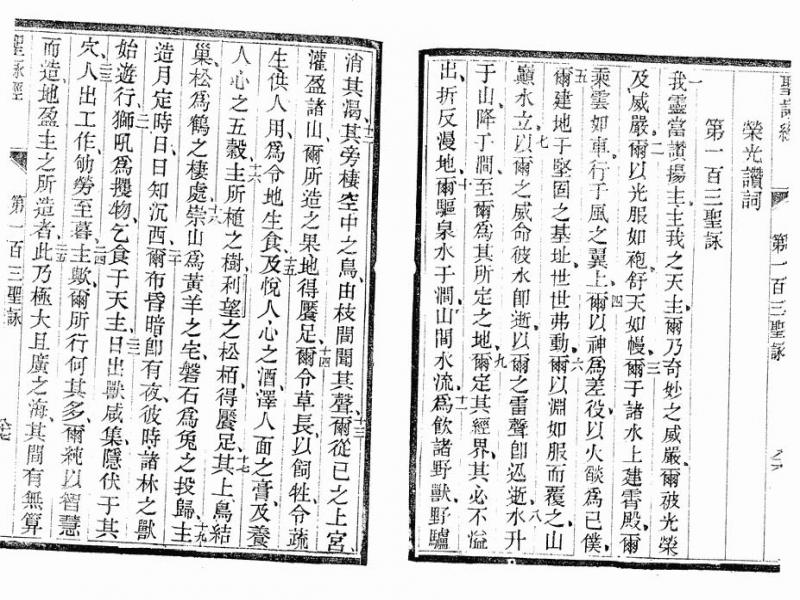 聖詠經
第一百三聖詠
榮光讚詞
第一百三聖詠
一我靈當讚揚主主我之天主爾乃奇妙之威嚴爾被光榮
及威嚴二爾以光服如袍舒天如幔三爾于諸水上建霄殿爾
乘雲如車行于風之翼上四爾以神為差役以火燄為已僕
五爾建地于堅固之基址世世弗動六爾以淵如服而覆之山
巔水立七以爾之威命彼水卽逝以爾之雷聲卽迯逝八水升
于山降于澗至爾為其所定之地九爾定其經界其必不溢
出折反漫地十爾驅泉水于澗山間水流十一為飲諸野獸野驢
消其渴十二其旁棲空中之鳥由枝間聞其聲十三爾從已之上宮
灌盈諸山爾所造之果地得饜足十四爾令草長以飼牲令蔬
生供人用為令地生食十五及悅人心之酒澤人面之膏及養
人心之五穀十六主所植之樹利望之松栢得饜足十七其上鳥結
巢松為鶴之棲處十八崇山為黃羊之宅磐石為兔之投歸十九主
造月定時日日知沉西二十爾布昏暗卽有夜彼時諸林之獸
始遊行二一獅吼為攫物乞食于天主二二日出獸咸集隱伏于其
穴二三人出工作劬勞至暮二四主歟爾所行何其多爾純以智慧
而造地盈主之所造者二五此乃極大且廣之海其間有無算
聖詠經
第一百三聖詠